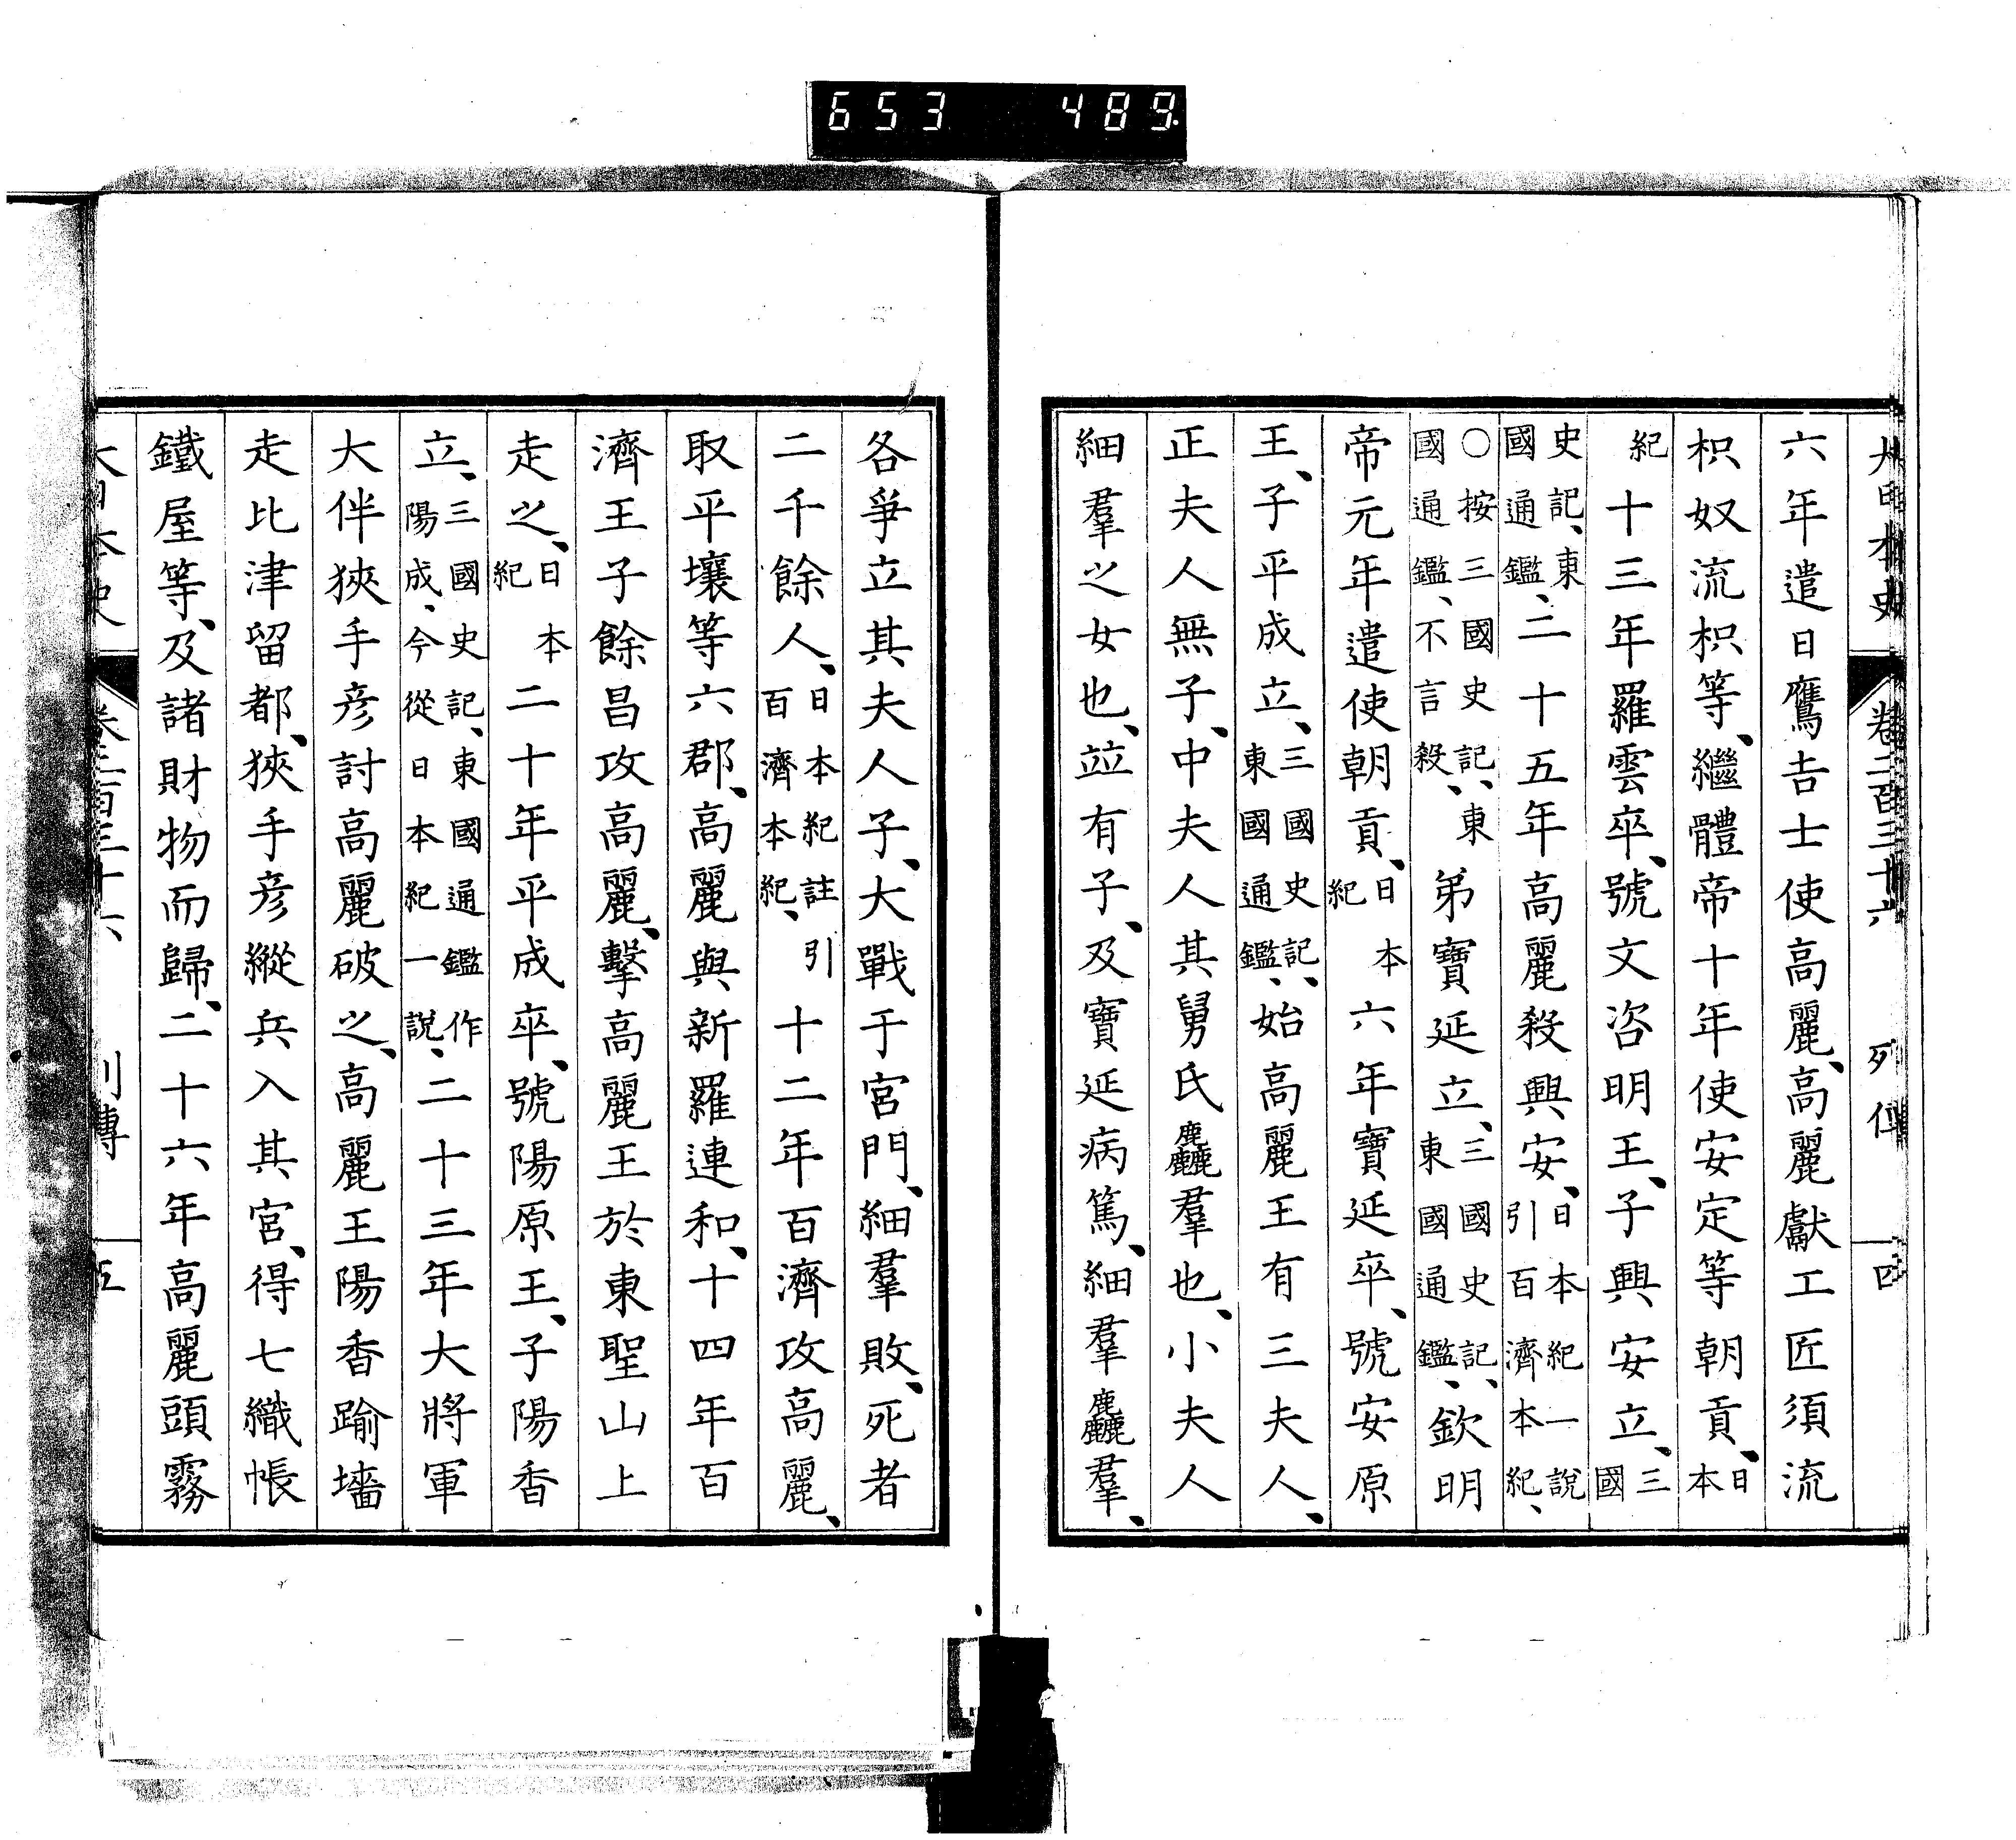 653 489
大日本史 卷二百三十六 列傳 四
六年遣日鷹吉士使高麗、高麗獻工匠須流
枳奴流枳等、繼體帝十年使安定等朝貢、日本
紀十三年羅雲卒、號文咨明王、子興安立、三國
史記、東國通鑑、二十五年高麗殺興安、日本紀一說引百濟本紀、
○按三國史記、東國通鑑、不言殺、弟寶延立、三國史記、東國通鑑、欽明
帝元年遣使朝貢、日本紀六年寶延卒、號安原
王、子平成立、三國史記、東國通鑑、始高麗王有三夫人、
正夫人無子、中夫人其舅氏麤羣也、小夫人
細羣之女也、竝有子、及寶延病篤、細羣麤羣、
各爭立其夫人子、大戰于宮門、細羣敗、死者
二千餘人、日本紀註引百濟本紀、十二年百濟攻高麗、
取平壤等六郡、高麗與新羅連和、十四年百
濟王子餘昌攻高麗、擊高麗王於東聖山上
走之、日本紀二十年平成卒、號陽原王、子陽香
立、三國史記、東國通鑑作陽成、今從日本紀一說、二十三年大將軍
大伴狹手彥討高麗破之、高麗王陽香踰墻
走比津留都、狹手彥縱兵入其宮、得七織帳
鐵屋等、及諸財物而歸、二十六年高麗頭霧
大日本史 卷二百三十六 列傳 五